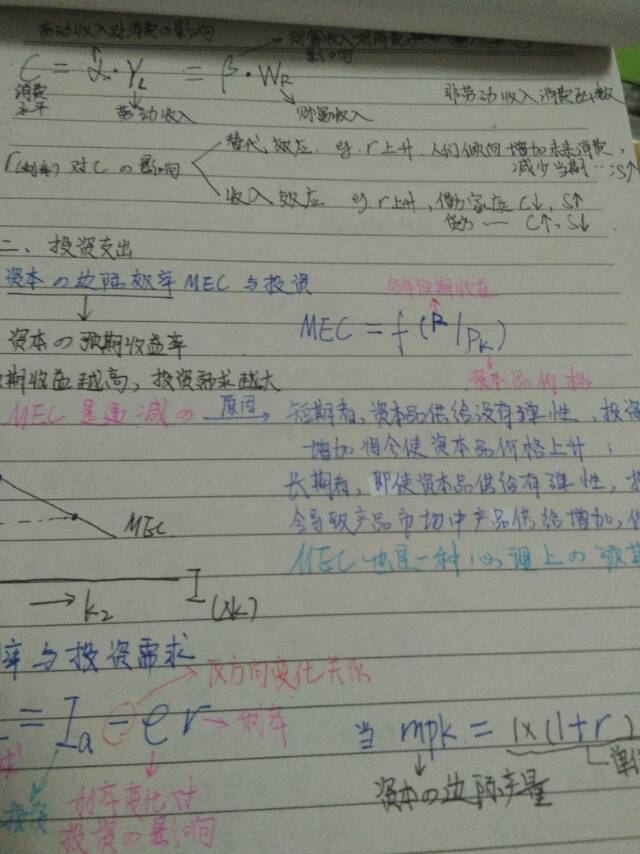 劳动收入对消费の影响
财富收入对消费の影响
C = α·Y_L = β·W_R
消费水平
劳动收入
财富收入
非劳动收入消费函数
r(利率)对C の影响
替代效应. eg. r上升, 人们倾向增加未来消费,
减少当期…∴S↑
收入效应 eg r上升, 借方家庭 C↓, S↑
贷方 — C↑, S↓
二、投资支出
资本の边际效率MEC与投资
每年预期收益
资本の预期收益率
MEC = f(R/P_K)
期收益越高, 投资需求越大
资本品价格
MEC是递减の 原因→ 短期看, 资本品供给没有弹性, 投资
增加将会使资本品价格上升;
长期看, 即使资本品供给有弹性,
会导致产品市场中产品供给增加,
MEC
MEC也是一种心理上の预期
→ k₂
I (△k)
率与投资需求
反方向变化关系
= I_a - e r → 利率
当 mpk = 1×(1+r)
资本の边际产量
投资
利率变化对
投资の影响